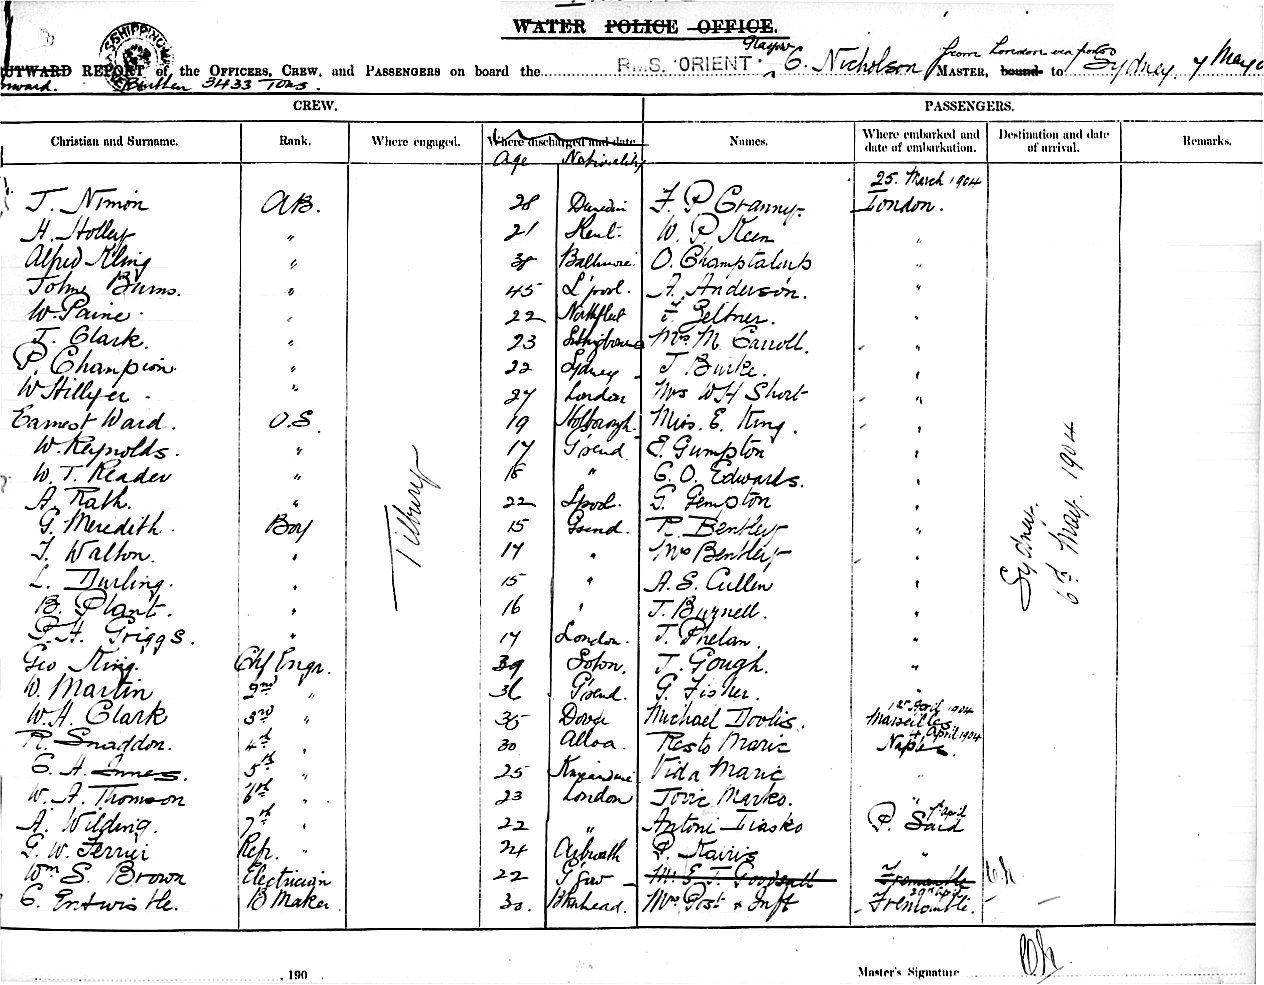 WATER POLICE OFFICE.
SHIPPING
OUTWARD REPORT of the OFFICERS, CREW, and PASSENGERS on board the R.M.S. "ORIENT" C. Nicholson MASTER, bound to Sydney 7 May
from London via ports
Burthen 3433 Tons.
CREW. PASSENGERS.
Christian and Surname. Rank. Where engaged. Where discharged and date Names. Where embarked and date of embarkation. Destination and date of arrival. Remarks.
Age Nationality
25 March 1904
J. Nimon A.B. 28 Dunedin F. P. Cranny London.
H. Holley " 21 Kent. W. P. Keen "
Alfred Kling " 38 Baltimore O. Champtaloup "
Johne Burns. " 45 L'pool. A. Anderson. "
W. Paine " 22 Northfleet Geltner. "
J. Clark. " 23 Mrs M. Carroll. "
P. Champion " 22 Sydney J. Burke. "
W Hillyer " 27 London Mrs W H Short "
Earnest Ward. O.S. 19 Miss. E. King. "
W. Reynolds. " 17 G'send E. Gumpton "
W. T. Reader " 18 " C. O. Edwards. "
A. Rath. " 22 Lpool. G. Gempton "
G. Meredith Boy 15 Gsend. R. Bentley "
J. Walton. " 17 " Mrs Bentley "
L. Durling. " 15 " A. S. Cullen "
B. Plant. " 16 " J. Burnell. "
P. H. Griggs. " 17 London. J. Phelan. "
Geo King. Chf Engr. 39 Soton. J. Gough. "
W. Martin 2nd " 36 G'send. G. Fisher. "
W. H. Clark 3rd " 35 Dover Michael Dovlis. 1st April 1904 Marseilles
R. Snaddon. 4th " 30 Alloa. Resto Maric 4 April 1904 Naples
C. H. Innes. 5th " 25 Vida Maric "
W. A. Thomson 6th " 23 London Jovic Marko. "
A. Wilding. 7th " 22 " Antoni Liasko P. Said April
G. W. Ferrier Refr. " 24 P. Kairis "
Wm S. Brown Electrician 22 G'gow Mr E. J. Goodsall Fremantle
C. Entwistle. B Maker 30. B'kenhead. Mrs Post & Inft Fremantle.
Tilbury
Sydney.
6th May. 1904
, 190 Master's Signature